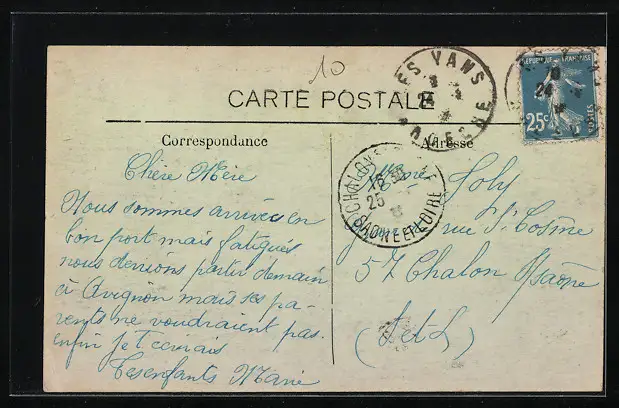 10
CARTE POSTALE
LES VANS
24
ARDECHE
REPUBLIQUE FRANCAISE
25c
POSTES
Correspondance
Adresse
CHALON S
16 30
25
SAONE ET LOIRE
Chère Mère
Nous sommes arrivés en
bon port mais fatigués
nous devions partir demain
à Avignon mais ses pa-
rents ne voudraient pas.
enfin je t'écrirais
Tes enfants Marie
Joly
rue St Cosme
57 Chalon s/ Saône
(S et L)